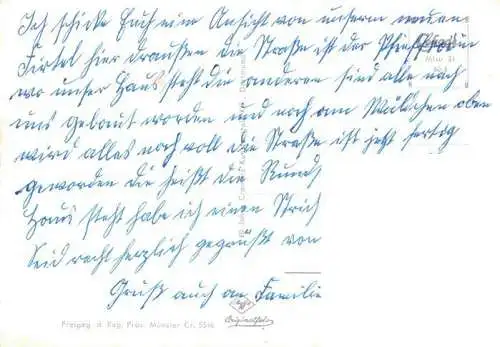 Ich schicke Euch eine Ansicht von unserm neuen
Firtel hier draußen die Straße ist der
wo unser Haus steht die anderen sind alle nach
uns gebaut worden und noch am Wäldchen oben
wird alles noch voll die Straße ist jetzt fertig
geworden die heißt die Rund
Haus steht habe ich einen Strich
Seid recht herzlich gegrüßt von
Gruß auch an Familie
Freigeg. d. Reg. Präs. Münster Cr. 5516
Originalfoto